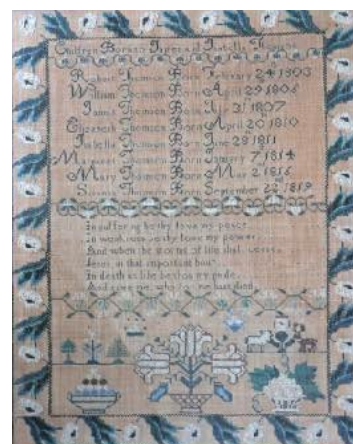 Children Born to James and Isabella Thomson
Robert Thomson Born February 24 1803
William Thomson Born April 29 1805
James Thomson Born 3 1807
Elizabeth Thomson Born April 20 1810
Isabella Thomson Born June 28 1811
Margaret Thomson Born January 7 1814
Mary Thomson Born Mar 2 1816
Thomson Born September 22 1819
In suffering be thy love my peace
In weakness be thy love my power
And when the storms of life shall cease
Jesus in that important hour
In death as life be thou my guide
And save me who for me hast died